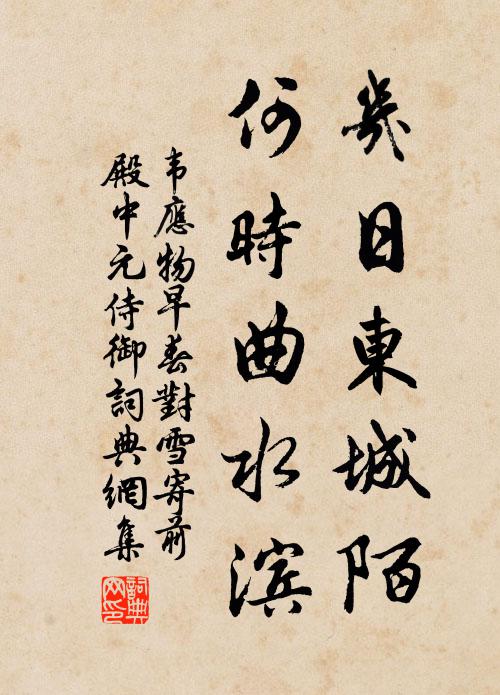 幾日東城陌
何時曲水滨
韦應物早春對雪寄前
殿中元侍御詞典網集
詞典
网印